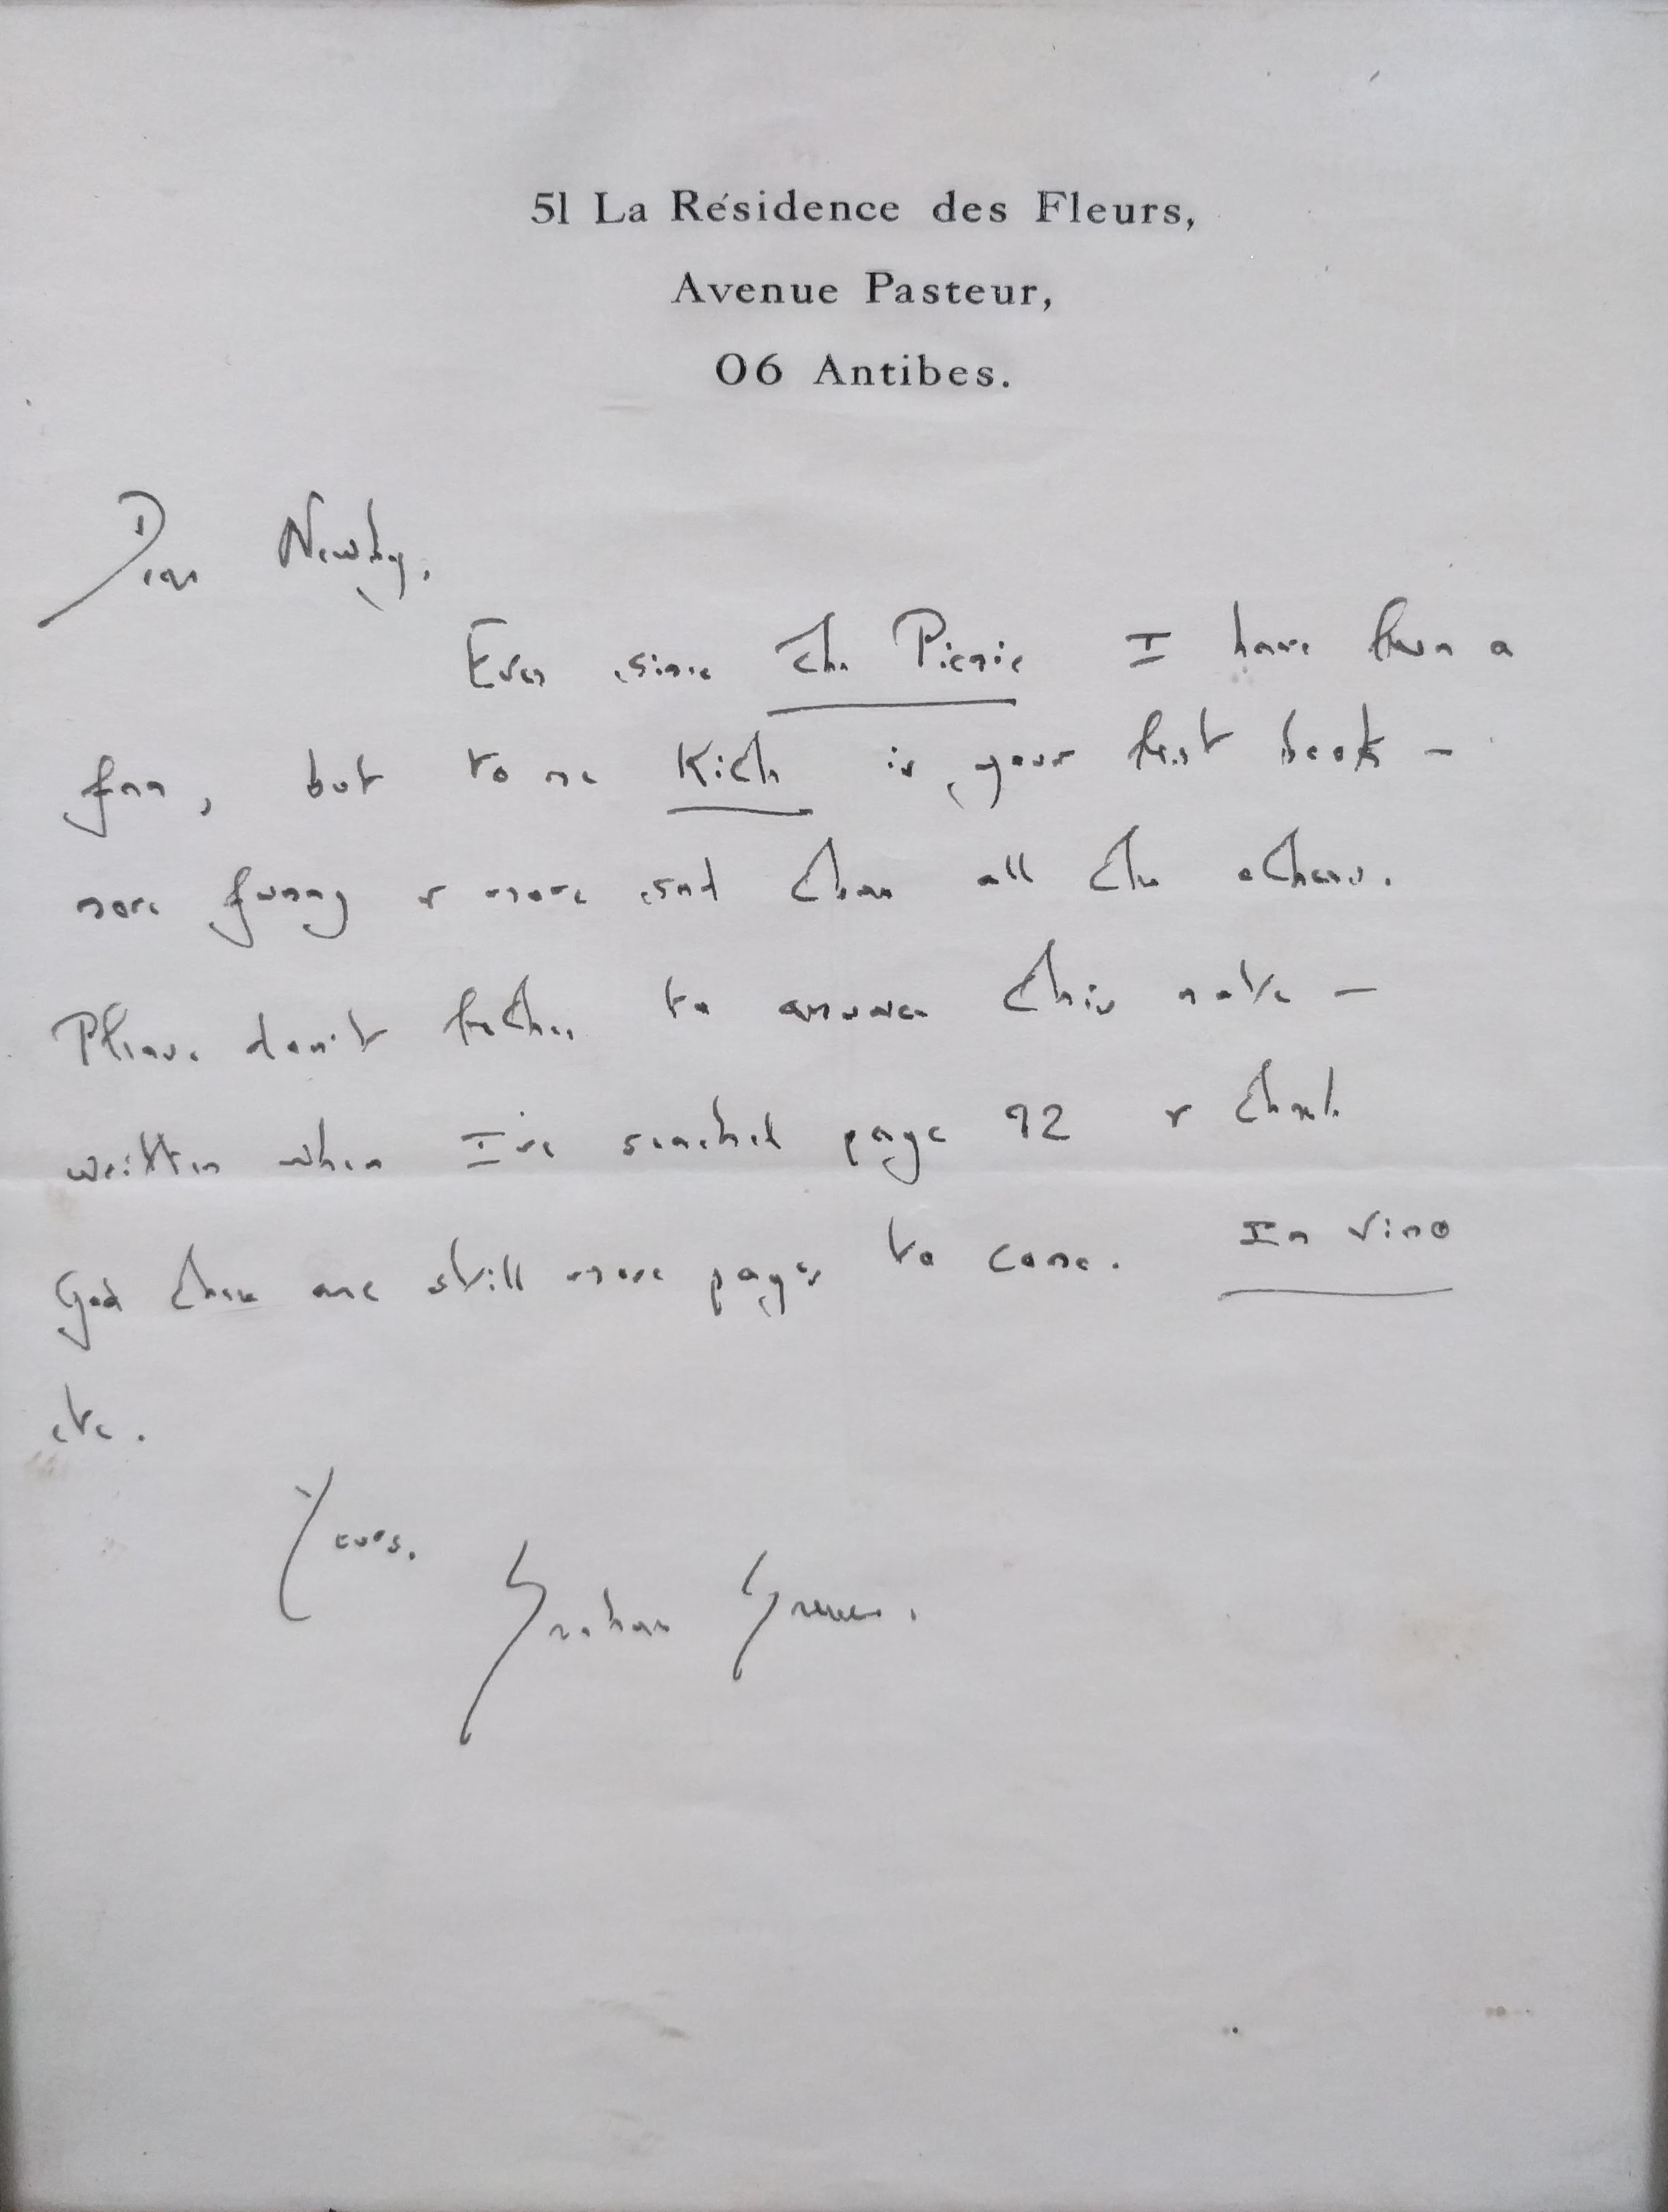 51 La Résidence des Fleurs,
Avenue Pasteur,
06 Antibes.
Dear Newby,
Ever since The Picnic I have been a
fan, but to me Kith is your best book –
more funny & more sad than all the others.
Please don't bother to answer this note –
written when I've reached page 92 & thank
God there are still more pages to come. In vino
etc.
Yours,
Graham Greene.